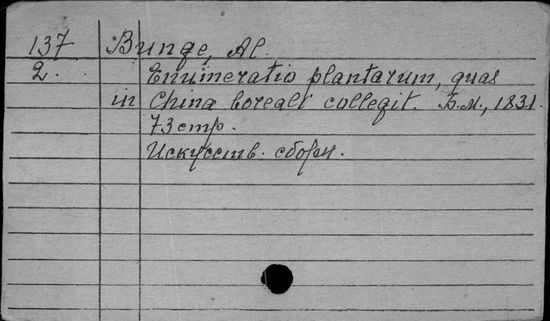 137 Bunge, Al.
2. Enumeratio plantarum, quas
in China boreali collegit. Б.м., 1831.
73 стр.
Искусств. сборн.